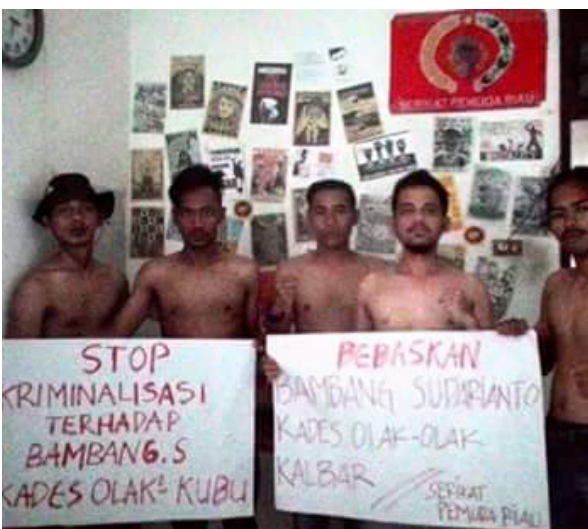 SERIKAT PEMUDA RIAU
STOP
KRIMINALISASI
TERHADAP
BAMBANG.S
KADES OLAK² KUBU
BEBASKAN
BAMBANG SUDARIANTO
KADES OLAK-OLAK
KALBAR
SERIKAT
PEMUDA RIAU